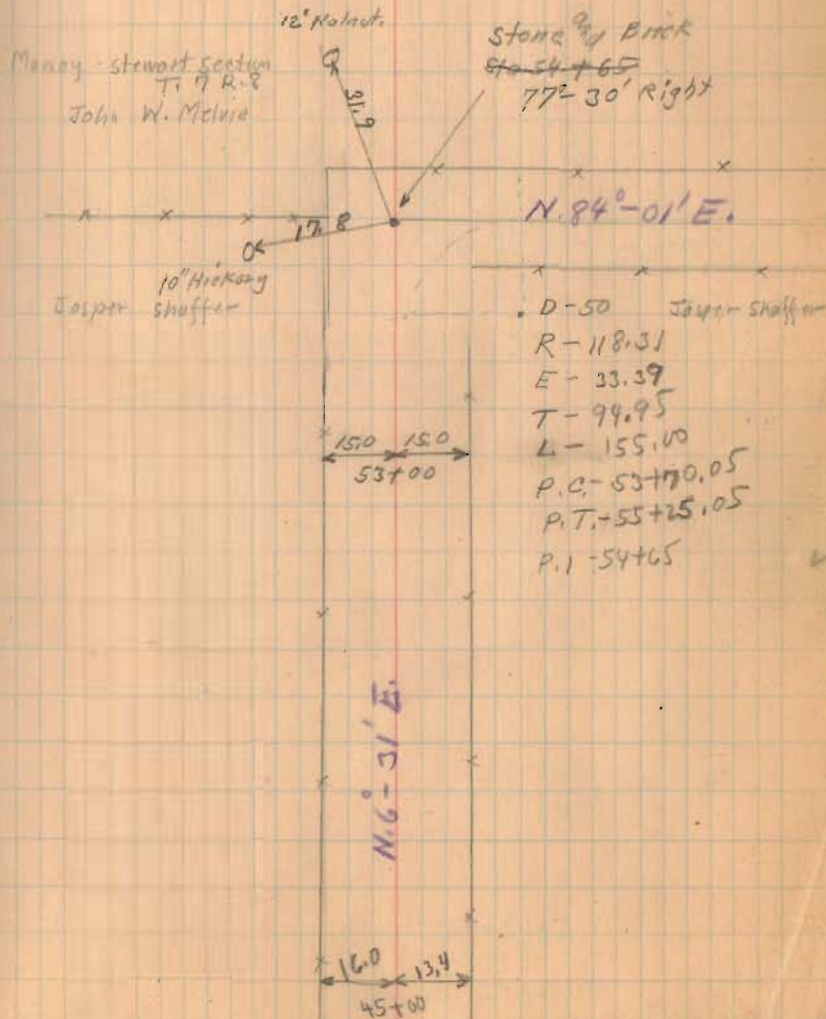 12" Walnut.
Stone and Brick
Sta 54+65
77°-30' Right
Money-stewart section
T. 7 R. 8
John W. Melvin
31.9
N. 84°-01' E.
17.8
10" Hickory
Jasper Shaffer
D-50
Jasper Shaffer
R-118.31
E-33.39
T-94.95
L-155.00
P.C.-53+70.05
P.T.-55+25.05
P.I-54+65
15.0 15.0
53+00
N.6°-31' E.
16.0 13.4
45+00